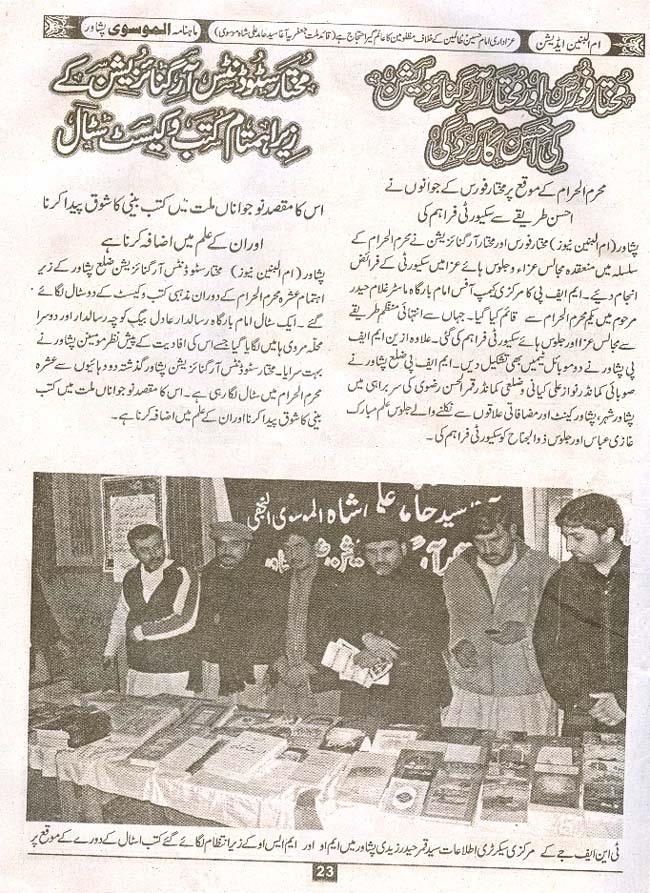 ام البنین ایڈیشن
عزاداری امام حسین ظالمین کے خلاف مظلومین کا عالم گیر احتجاج ہے (قائد ملت جعفریہ آغا سید حامد علی شاہ موسوی)
ماہنامہ الموسوی پشاور
مختار فورس اور مختار آرگنائزیشن
کی احسن کارکردگی
محرم الحرام کے موقع پر مختار فورس کے جوانوں نے
احسن طریقے سے سکیورٹی فراہم کی
پشاور (ام البنین نیوز) مختار فورس اور مختار آرگنائزیشن نے محرم الحرام کے
سلسلہ میں منعقدہ مجالس عزاء و جلوس ہائے عزا میں سکیورٹی کے فرائض
انجام دیئے۔ ایم ایف پی کا مرکزی کیمپ آفس امام بارگاہ ماسٹر غلام حیدر
مرحوم میں یکم محرم الحرام سے قائم کیا گیا۔ جہاں سے انتہائی منظم طریقے
سے مجالس عزا اور جلوس ہائے سکیورٹی فراہم کی گئی۔ علاوہ ازیں ایم ایف
پی پشاور نے دو موبائل ٹیمیں بھی تشکیل دیں۔ ایم ایف پی ضلع پشاور نے
صوبائی کمانڈر نواز علی کیانی و ضلعی کمانڈر قمر الحسن رضوی کی سربراہی میں
پشاور شہر، پشاور کینٹ اور مضافاتی علاقوں سے نکلنے والے جلوس علم مبارک
غازی عباس اور جلوس ذوالجناح کو سکیورٹی فراہم کی۔
مختار سٹوڈنٹس آرگنائزیشن کے
زیر اہتمام کتب و کیسٹ سٹال
اس کا مقصد نوجوانان ملت میں کتب بینی کا شوق پیدا کرنا
اور ان کے علم میں اضافہ کرنا ہے
پشاور (ام البنین نیوز) مختار سٹوڈنٹس آرگنائزیشن ضلع پشاور کے زیر
اہتمام عشرہ محرم الحرام کے دوران مذہبی کتب و کیسٹ کے دو سٹال لگائے
گئے۔ ایک سٹال امام بارگاہ رسالدار عادل بیگ کوچہ رسالدار اور دوسرا
محلہ مروی ہا میں لگایا گیا جسے اس کی افادیت کے پیش نظر مومنین پشاور نے
بہت سراہا۔ مختار سٹوڈنٹس آرگنائزیشن پشاور گذشتہ دو دہائیوں سے عشرہ
محرم الحرام میں سٹال لگا رہی ہے۔ اس کا مقصد نوجوانان ملت میں کتب
بینی کا شوق پیدا کرنا اور ان کے علم میں اضافہ کرنا ہے۔
سید حامد علی شاہ الموسوی النجفی
ٹی این ایف جے کے مرکزی سیکرٹری اطلاعات سید قمر حیدر زیدی پشاور میں ایم او اور ایم ایس او کے زیر انتظام لگائے گئے کتب اسٹال کے دورے کے موقع پر
23